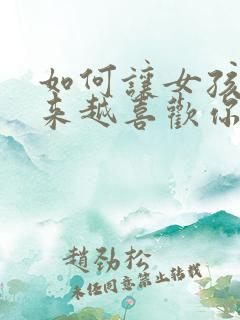 如何讓女孩
來越喜歡你
趙勁松
未任同意禁止转载